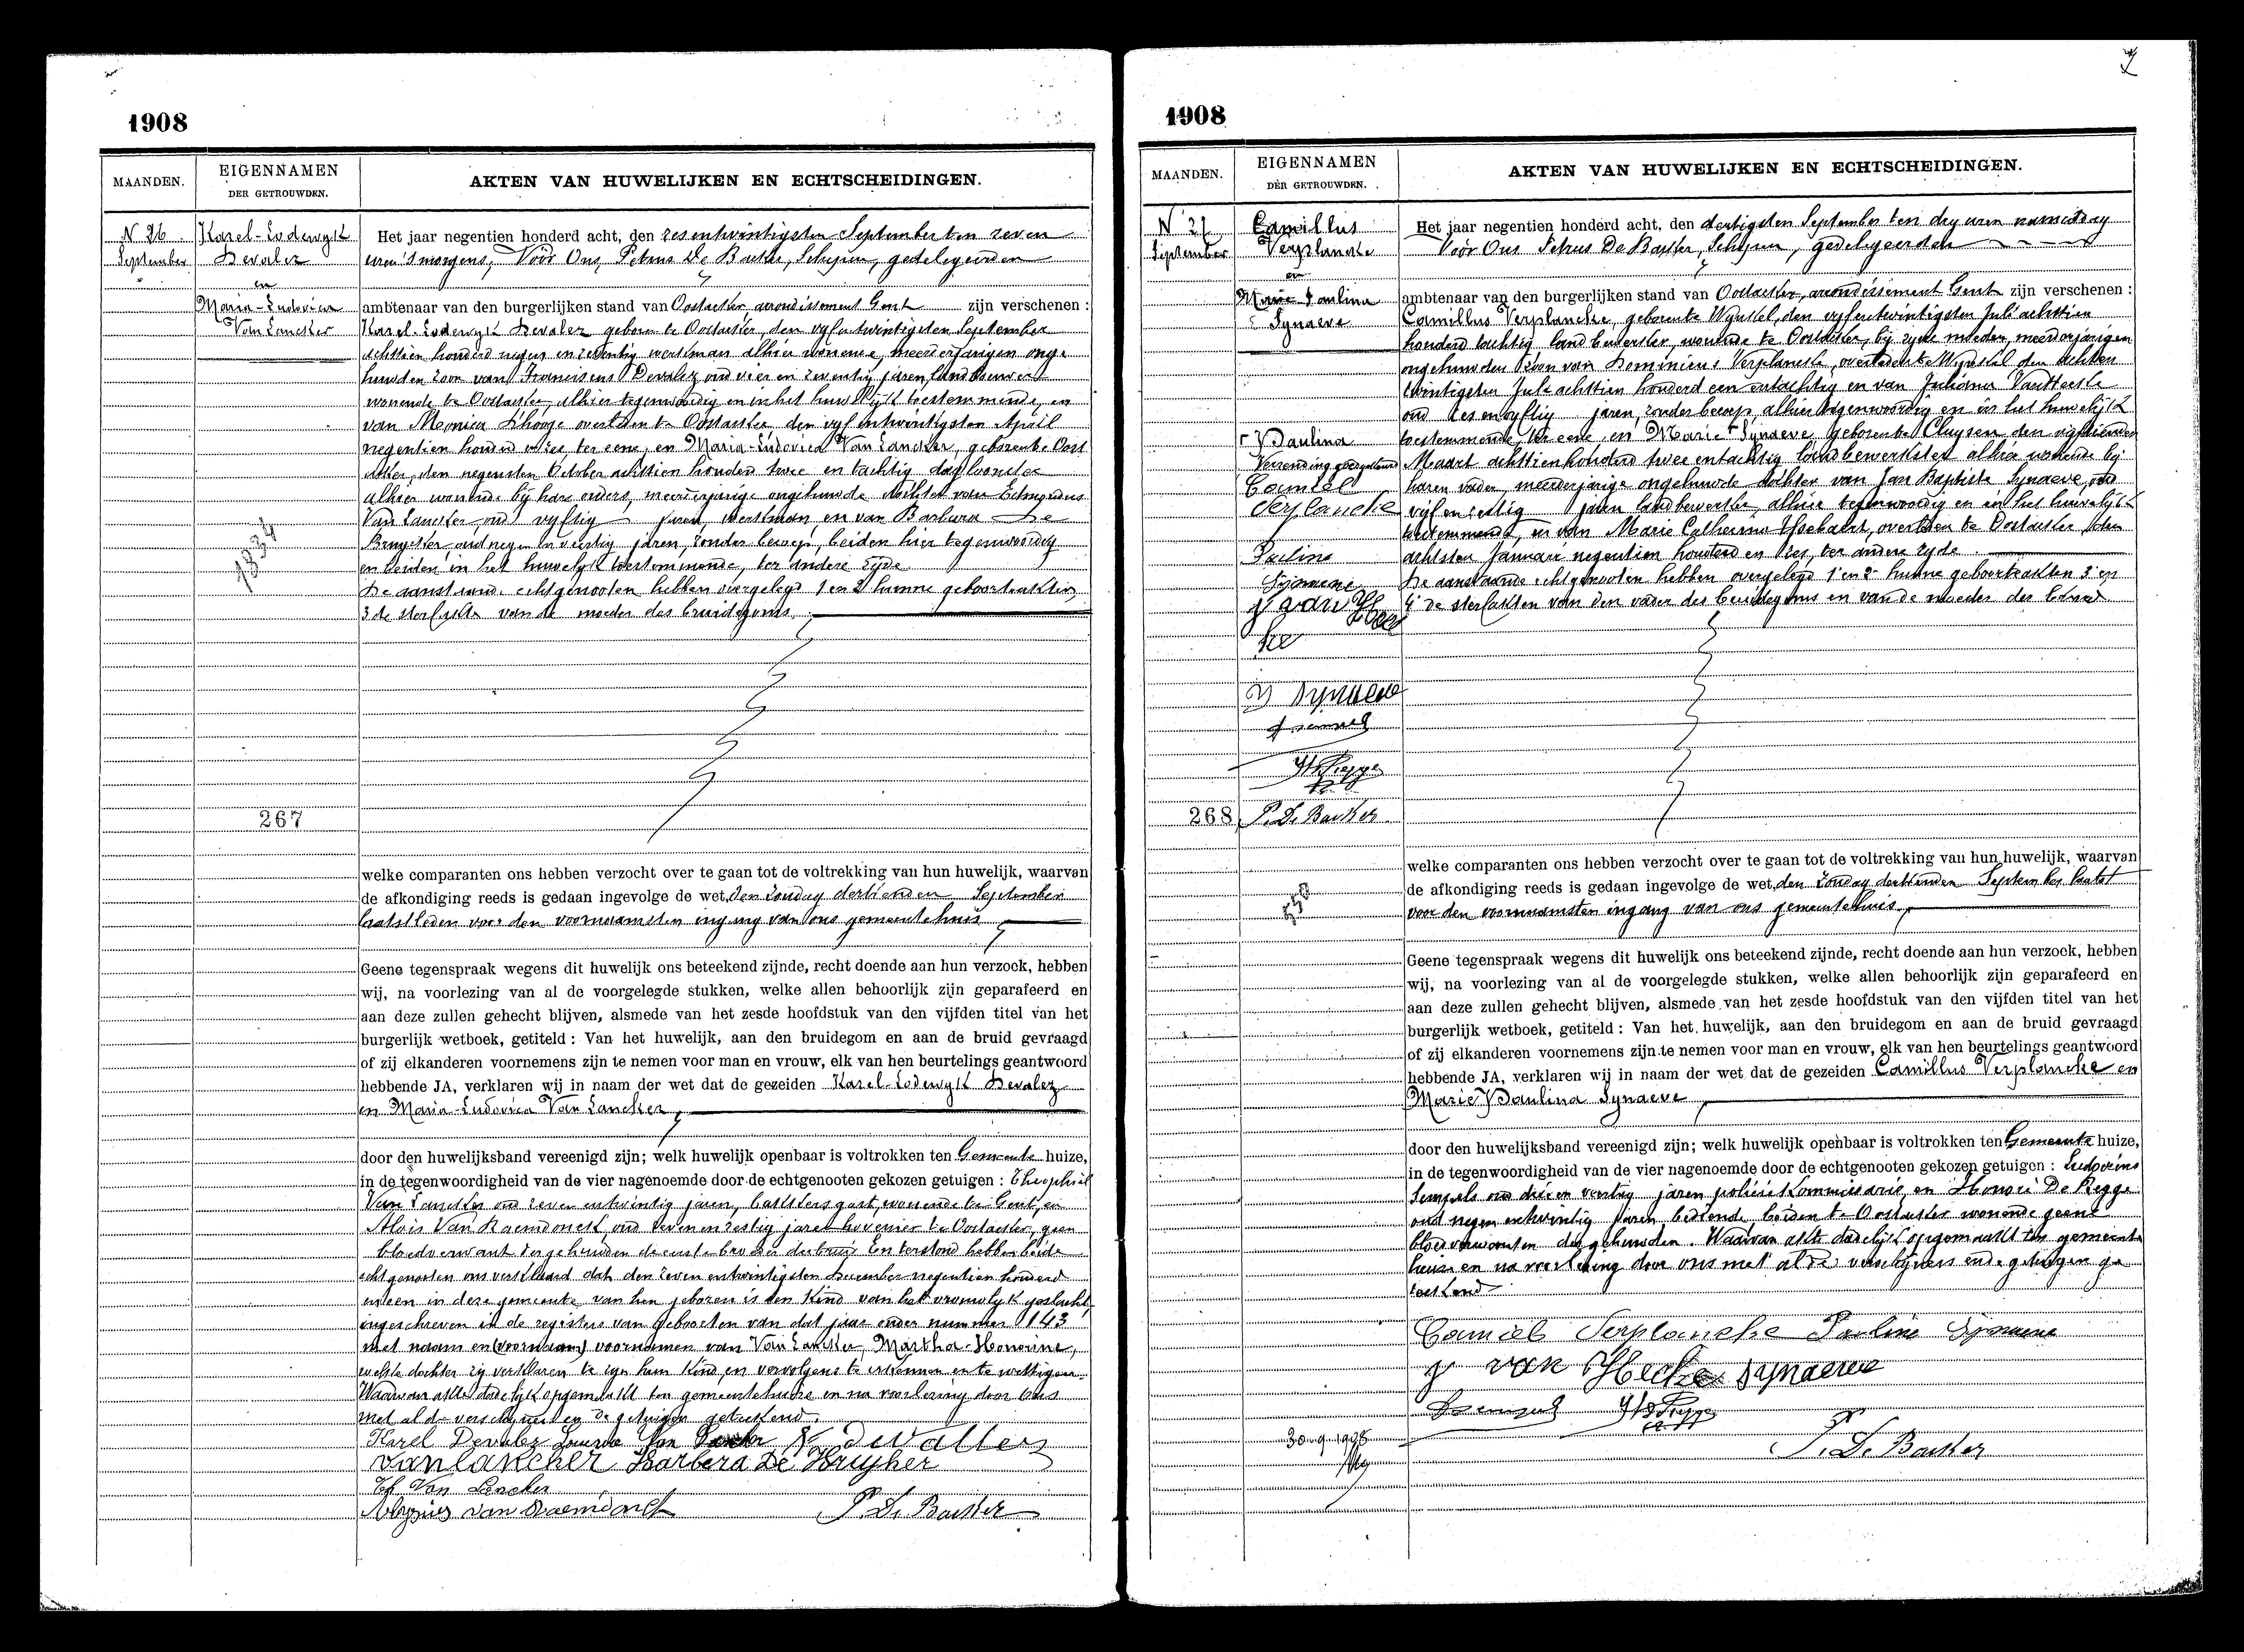 1908
MAANDEN.
EIGENNAMEN
DER GETROUWDEN.
AKTEN VAN HUWELIJKEN EN ECHTSCHEIDINGEN.
N 26
September
Karel-Lodewyk
Devalez
en
Maria-Ludovica
Van Lancker
Het jaar negentien honderd acht, den zesentwintigsten September ten zeven
uren 's morgens, Vóór Ons, Petrus De Backer, Schepen, gedelegeerden
ambtenaar van den burgerlijken stand van Oostacker, arrondissement Gent zijn verschenen :
Karel-Lodewyk Devalez geboren te Oostacker, den vyfentwintigsten September
achttien honderd negen en zeventig werkman alhier wonende, meerderjarigen onge-
huwden zoon van Franciscus Devalez oud vier en zeventig jaren, landbouwer
wonende te Oostacker, alhier tegenwoordig en in het huwelijk toestemmende, en
van Monica Dhooge overleden te Oostacker den vyf entwintigsten April
negentien honderd en zes ter eene, en Maria-Ludovica Van Lancker, geboren te Oost
acker, den negensten October achttien honderd twee en tachtig dagloonster
alhier wonende bij hare ouders, meerderjarige ongehuwde dochter van Edmondus
Van Lancker, oud vyftig jaren, werkman en van Barbara De
Bruycker, oud negen en veertig jaren, zonder beroep, beiden hier tegenwoordig
en beiden in het huwelyk toestemmende, ter andere zyde
De aanstaande echtgenooten hebben voorgelegd 1 en 2 hunne geboorteakten,
3 de sterfakte van de moeder des bruidegoms.
267
welke comparanten ons hebben verzocht over te gaan tot de voltrekking van hun huwelijk, waarvan
de afkondiging reeds is gedaan ingevolge de wet, den Zondag dertienden September
laatstleden voor den voornaamsten ingang van ons gemeentehuis
Geene tegenspraak wegens dit huwelijk ons beteekend zijnde, recht doende aan hun verzock, hebben
wij, na voorlezing van al de voorgelegde stukken, welke allen behoorlijk zijn geparafeerd en
aan deze zullen gehecht blijven, alsmede van het zesde hoofdstuk van den vijfden titel van het
burgerlijk wetboek, getiteld : Van het huwelijk, aan den bruidegom en aan de bruid gevraagd
of zij elkanderen voornemens zijn te nemen voor man en vrouw, elk van hen beurtelings geantwoord
hebbende JA, verklaren wij in naam der wet dat de gezeiden Karel-Lodewyk Devalez
en Maria-Ludovica Van Lancker,
door den huwelijksband vereenigd zijn; welk huwelijk openbaar is voltrokken ten Gemeente huize,
in de tegenwoordigheid van de vier nagenoemde door de echtgenooten gekozen getuigen : Theophiel
Van Lancker oud zeven entwintig jaren, bakkersgast, wonende te Gent, en
Alois Van Raemdonck, oud zeven en zestig jaren hovenier te Oostacker, geen
bloedverwant der gehuwden de eerste broeder der bruid En terstond hebben beide
echtgenooten ons verklaard dat den zeven entwintigsten December negentien honderd
en een in deze gemeente van hen geboren is een Kind van het vrouwelyk geslacht,
ingeschreven in de registers van geboorten van dat jaar onder nummer 143
met naam en (voornaam) voornamen van Van Lancker, Martha-Honorine,
welke dochter zy verklaren te zyn hun Kind, en vervolgens te erkennen en te wettigen.
Waarvan akte dadelyk opgemaakt ten gemeentehuize en na voorlezing door ons
met al de verschijnenden de getuigen geteekend.
Karel Devalez Van Lancker
vanlancker Barbera De Bruycker
Th Van Lancker
Aloysius van Raemdonck P. De Backer
1908
MAANDEN.
EIGENNAMEN
DER GETROUWDEN.
AKTEN VAN HUWELIJKEN EN ECHTSCHEIDINGEN.
N 27
September
Camillus
Verplancke
en
Marie Paulina
Synaeve
Het jaar negentien honderd acht, den dertigsten September ten dry uren namiddag
Vóór Ons Petrus De Backer, Schepen, gedelegeerden
ambtenaar van den burgerlijken stand van Oostacker, arrondissement Gent zijn verschenen :
Camillus Verplancke, geboren te Wynkel, den vyfentwintigsten Juli achttien
honderd tachtig landbewerker, wonende te Oostacker, bij zyne moeder, meerderjarigen
ongehuwden zoon van Dominicus Verplancke, overleden te Wynkel den achten
twintigsten Juli achttien honderd een entachtig en van Juliana VanHecke
oud zesenvyftig jaren, zonder beroep, alhier tegenwoordig en in het huwelijk
toestemmende, ter eene, en Marie Synaeve geboren te Cluysen den vyftienden
Maart achttienhonderd twee entachtig landbewerkster alhier wonende bij
haren vader, meerderjarige ongehuwde dochter van Jan Baptiste Synaeve, oud
vyfenzestig jaren landbewerker, alhier tegenwoordig en in het huwelijk
toestemmende, en van Marie Catherine Hoebaert, overleden te Oostacker den
achtsten Januari negentien honderd en zes, ter andere zyde
De aanstaande echtgenooten hebben overgelegd 1 en 2 hunne geboorteakten 3 en
4 de sterfakten van den vader des bruidegoms en van de moeder der bruid
Paulina
Verzending goedgekeurd
Camiel
Verplancke
Pauline
Synaeve
J van Hecke
Synaeve
268
P. De Backer
welke comparanten ons hebben verzocht over te gaan tot de voltrekking van hun huwelijk, waarvan
de afkondiging reeds is gedaan ingevolge de wet, den Zondag dertienden September laatst
voor den voornaamsten ingang van ons gemeentehuis,
Geene tegenspraak wegens dit huwelijk ons beteekend zijnde, recht doende aan hun verzock, hebben
wij, na voorlezing van al de voorgelegde stukken, welke allen behoorlijk zijn geparafeerd en
aan deze zullen gehecht blijven, alsmede van het zesde hoofdstuk van den vijfden titel van het
burgerlijk wetboek, getiteld : Van het huwelijk, aan den bruidegom en aan de bruid gevraagd
of zij elkanderen voornemens zijn te nemen voor man en vrouw, elk van hen beurtelings geantwoord
hebbende JA, verklaren wij in naam der wet dat de gezeiden Camillus Verplancke en
Marie Paulina Synaeve
door den huwelijksband vereenigd zijn; welk huwelijk openbaar is voltrokken ten Gemeente huize,
in de tegenwoordigheid van de vier nagenoemde door de echtgenooten gekozen getuigen : Ludovicus
Sempels oud drie en veertig jaren policiekommissaris, en Honoré De Regge
oud negen entwintig jaren, bediende, beiden te Oostacker wonende geene
bloedverwanten der gehuwden. Waarvan akte dadelijk opgemaakt ten gemeente
huize en na voorlezing door ons met al de verschijners en de getuigen ge
teekend
Camiel Verplancke Pauline Synaeve
J van Hecke Synaeve
30-9-1908
P. De Backer